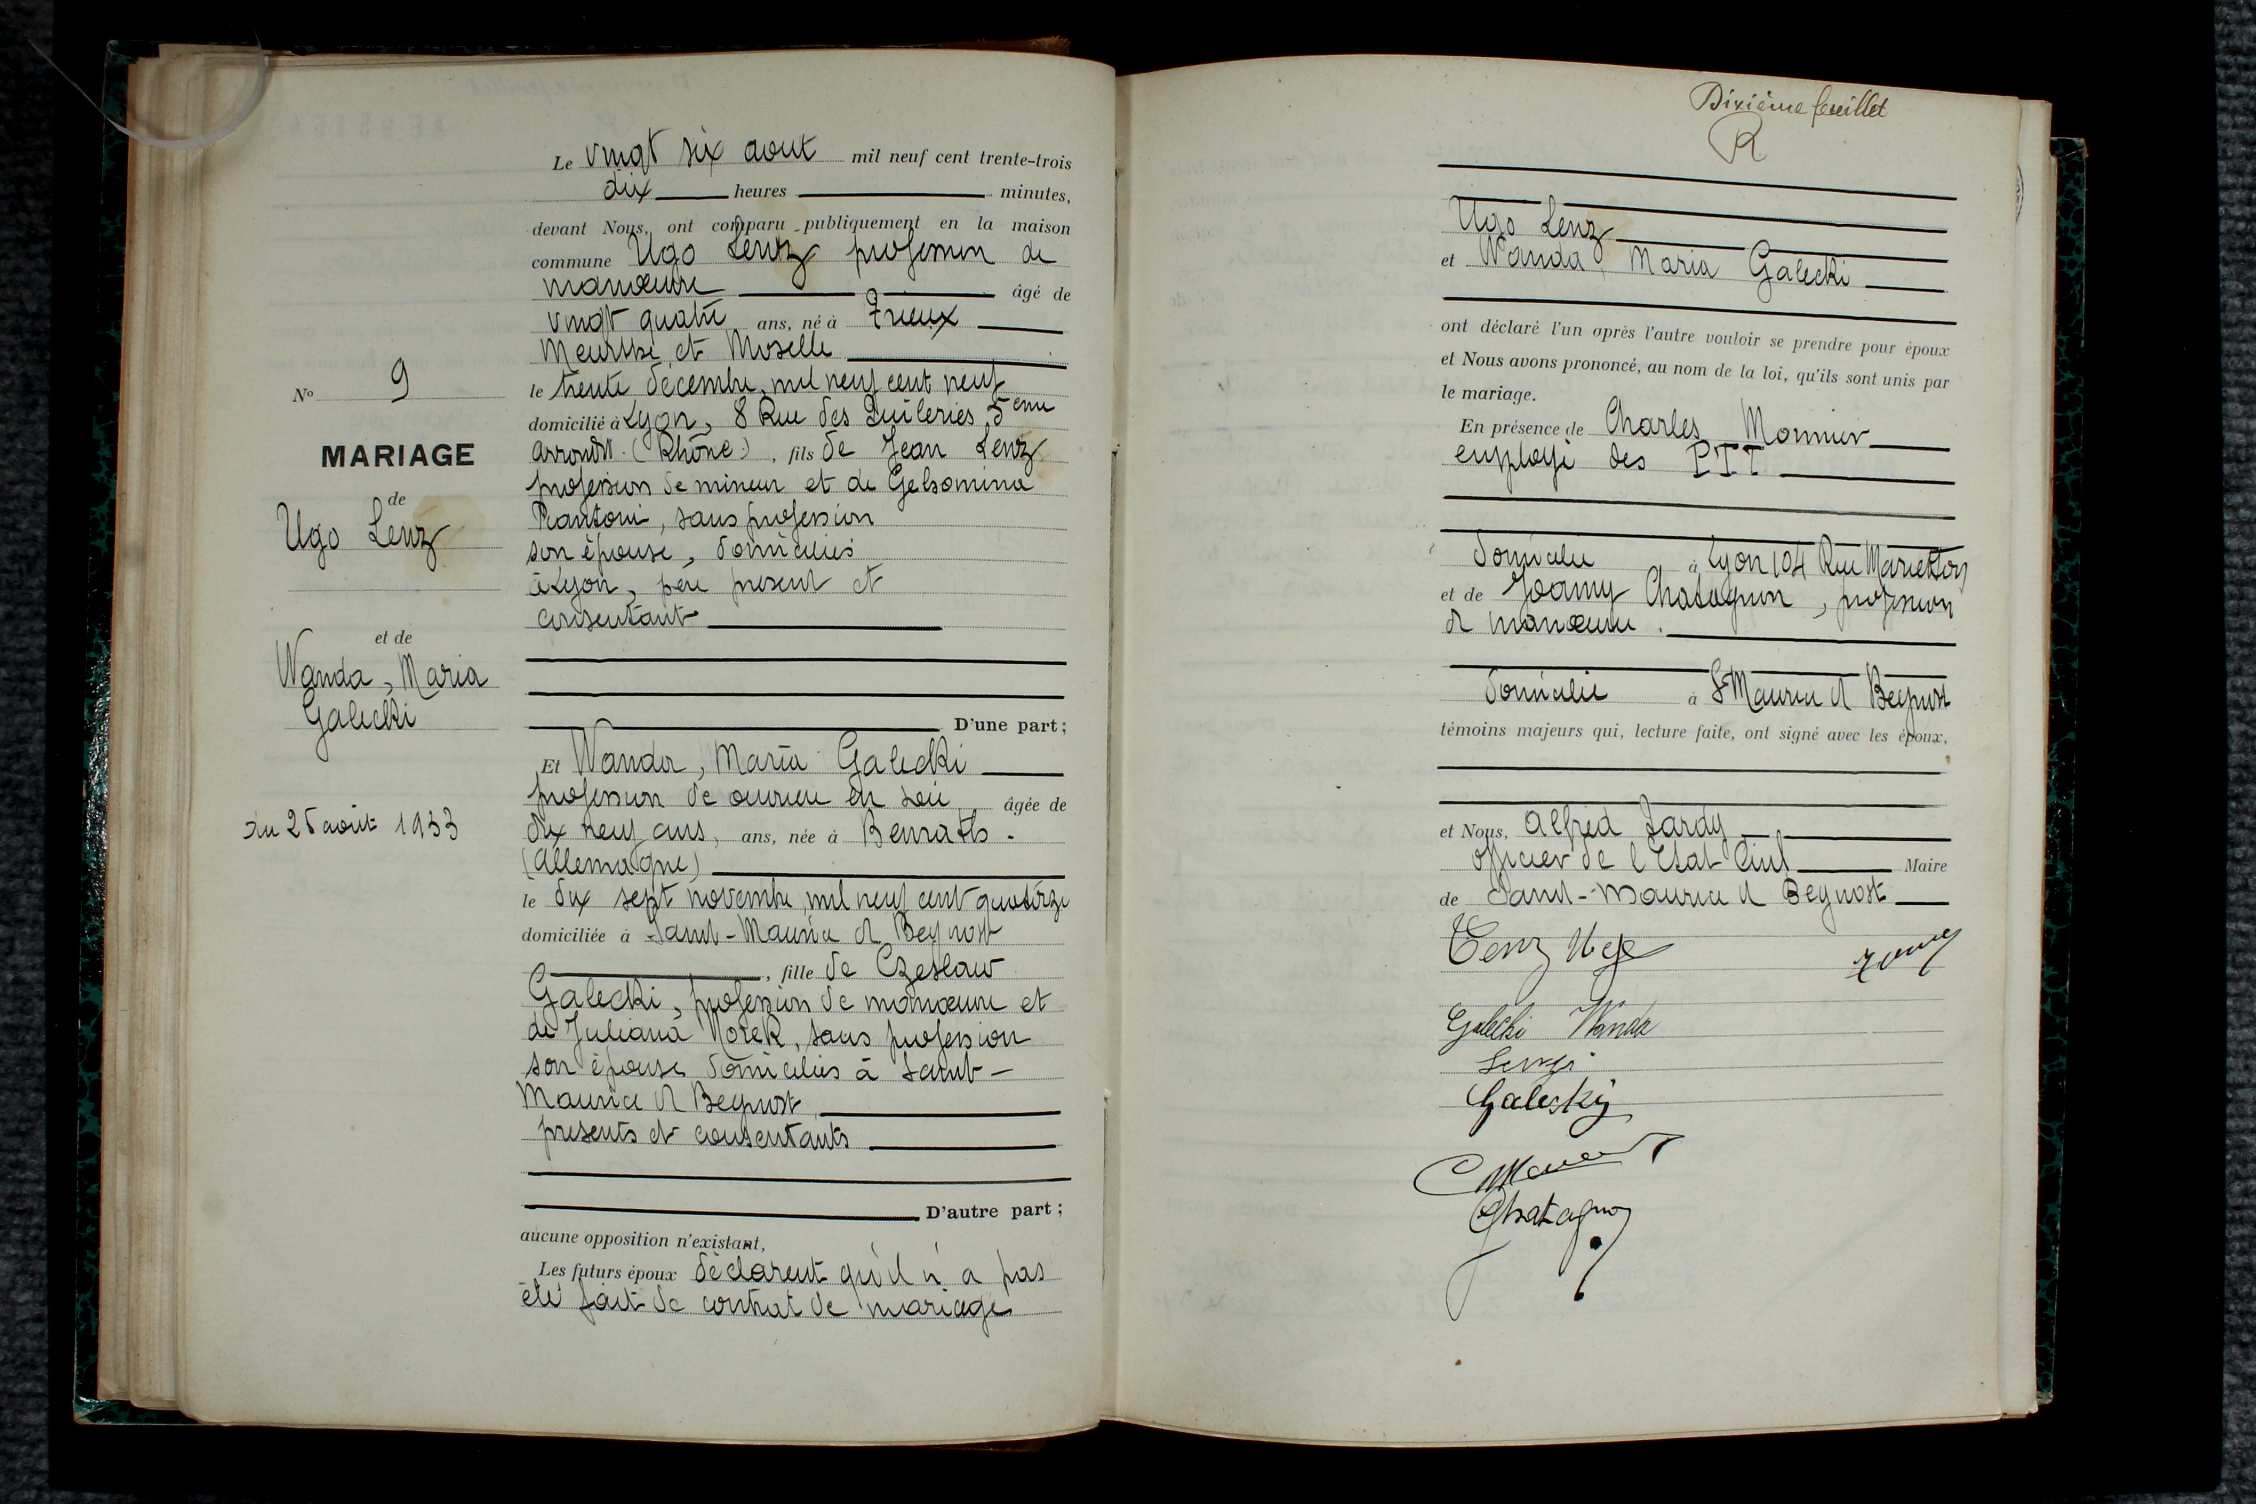 Le vingt six aout mil neuf cent trente-trois
dix heures minutes,
devant Nous, ont comparu publiquement en la maison
commune Ugo Lenz profession de
manœuvre âgé de
vingt quatre ans, né à Trieux
Meurthe et Moselle
le trente décembre mil neuf cent neuf
domicilié à Lyon, 8 Rue des Tuileries 5eme
arrondt. (Rhône), fils de Jean Lenz
profession de mineur et de Gelsomina
Piantoni, sans profession
son épouse, domiciliés
à Lyon, père présent et
consentant
D'une part;
Et Wanda, Maria Galecki
profession de ouvrière en soie âgée de
dix neuf ans, ans, née à Benrath.
(Allemagne)
le dix sept novembre mil neuf cent quatorze
domiciliée à Saint-Maurice d Beynost
, fille de Czeslaw
Galecki, profession de manœuvre et
de Juliana Norek, sans profession
son épouse domiciliés à Saint-
Maurice d Beynost
présents et consentants
D'autre part;
aucune opposition n'existant,
Les futurs époux déclarent qu'il n'a pas
été fait de contrat de mariage
No 9
MARIAGE
de
Ugo Lenz
et de
Wanda, Maria
Galecki
du 26 août 1933
Dixième feuillet
R
Ugo Lenz
et Wanda, Maria Galecki
ont déclaré l'un après l'autre vouloir se prendre pour époux
et Nous avons prononcé, au nom de la loi, qu'ils sont unis par
le mariage.
En présence de Charles Monnier
employé des PTT
domicilié à Lyon 104 Rue Marietton
et de Joanny Chatagnon, profession
d manœuvre.
domicilié à St Maurice d Beynost
témoins majeurs qui, lecture faite, ont signé avec les époux,
et Nous, Alfred Jardy
officier de l'Etat Civil Maire
de Saint-Maurice d Beynost
Lenz Ugo
Galecki Wanda
Galecki
Chatagnon